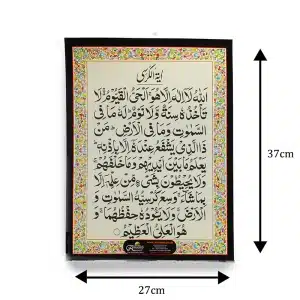 اٰیة الکرسی
اَللّٰهُ لَاۤ اِلٰهَ اِلَّا هُوَ اَلْحَیُّ الْقَیُّوْمُ لَا
تَاْخُذُهٗ سِنَةٌ وَّلَا نَوْمٌ لَهٗ مَا فِی
السَّمٰوٰتِ وَمَا فِی الْاَرْضِ مَنْ
ذَا الَّذِیْ یَشْفَعُ عِنْدَهٗۤ اِلَّا بِاِذْنِهٖ
یَعْلَمُ مَا بَیْنَ اَیْدِیْهِمْ وَمَا خَلْفَهُمْ
وَلَا یُحِیْطُوْنَ بِشَیْءٍ مِّنْ عِلْمِهٖۤ اِلَّا
بِمَا شَآءَ وَسِعَ کُرْسِیُّهُ السَّمٰوٰتِ وَ
الْاَرْضَ وَلَا یَـُٔوْدُهٗ حِفْظُهُمَا وَ
هُوَ الْعَلِیُّ الْعَظِیْمُ
37cm
27cm